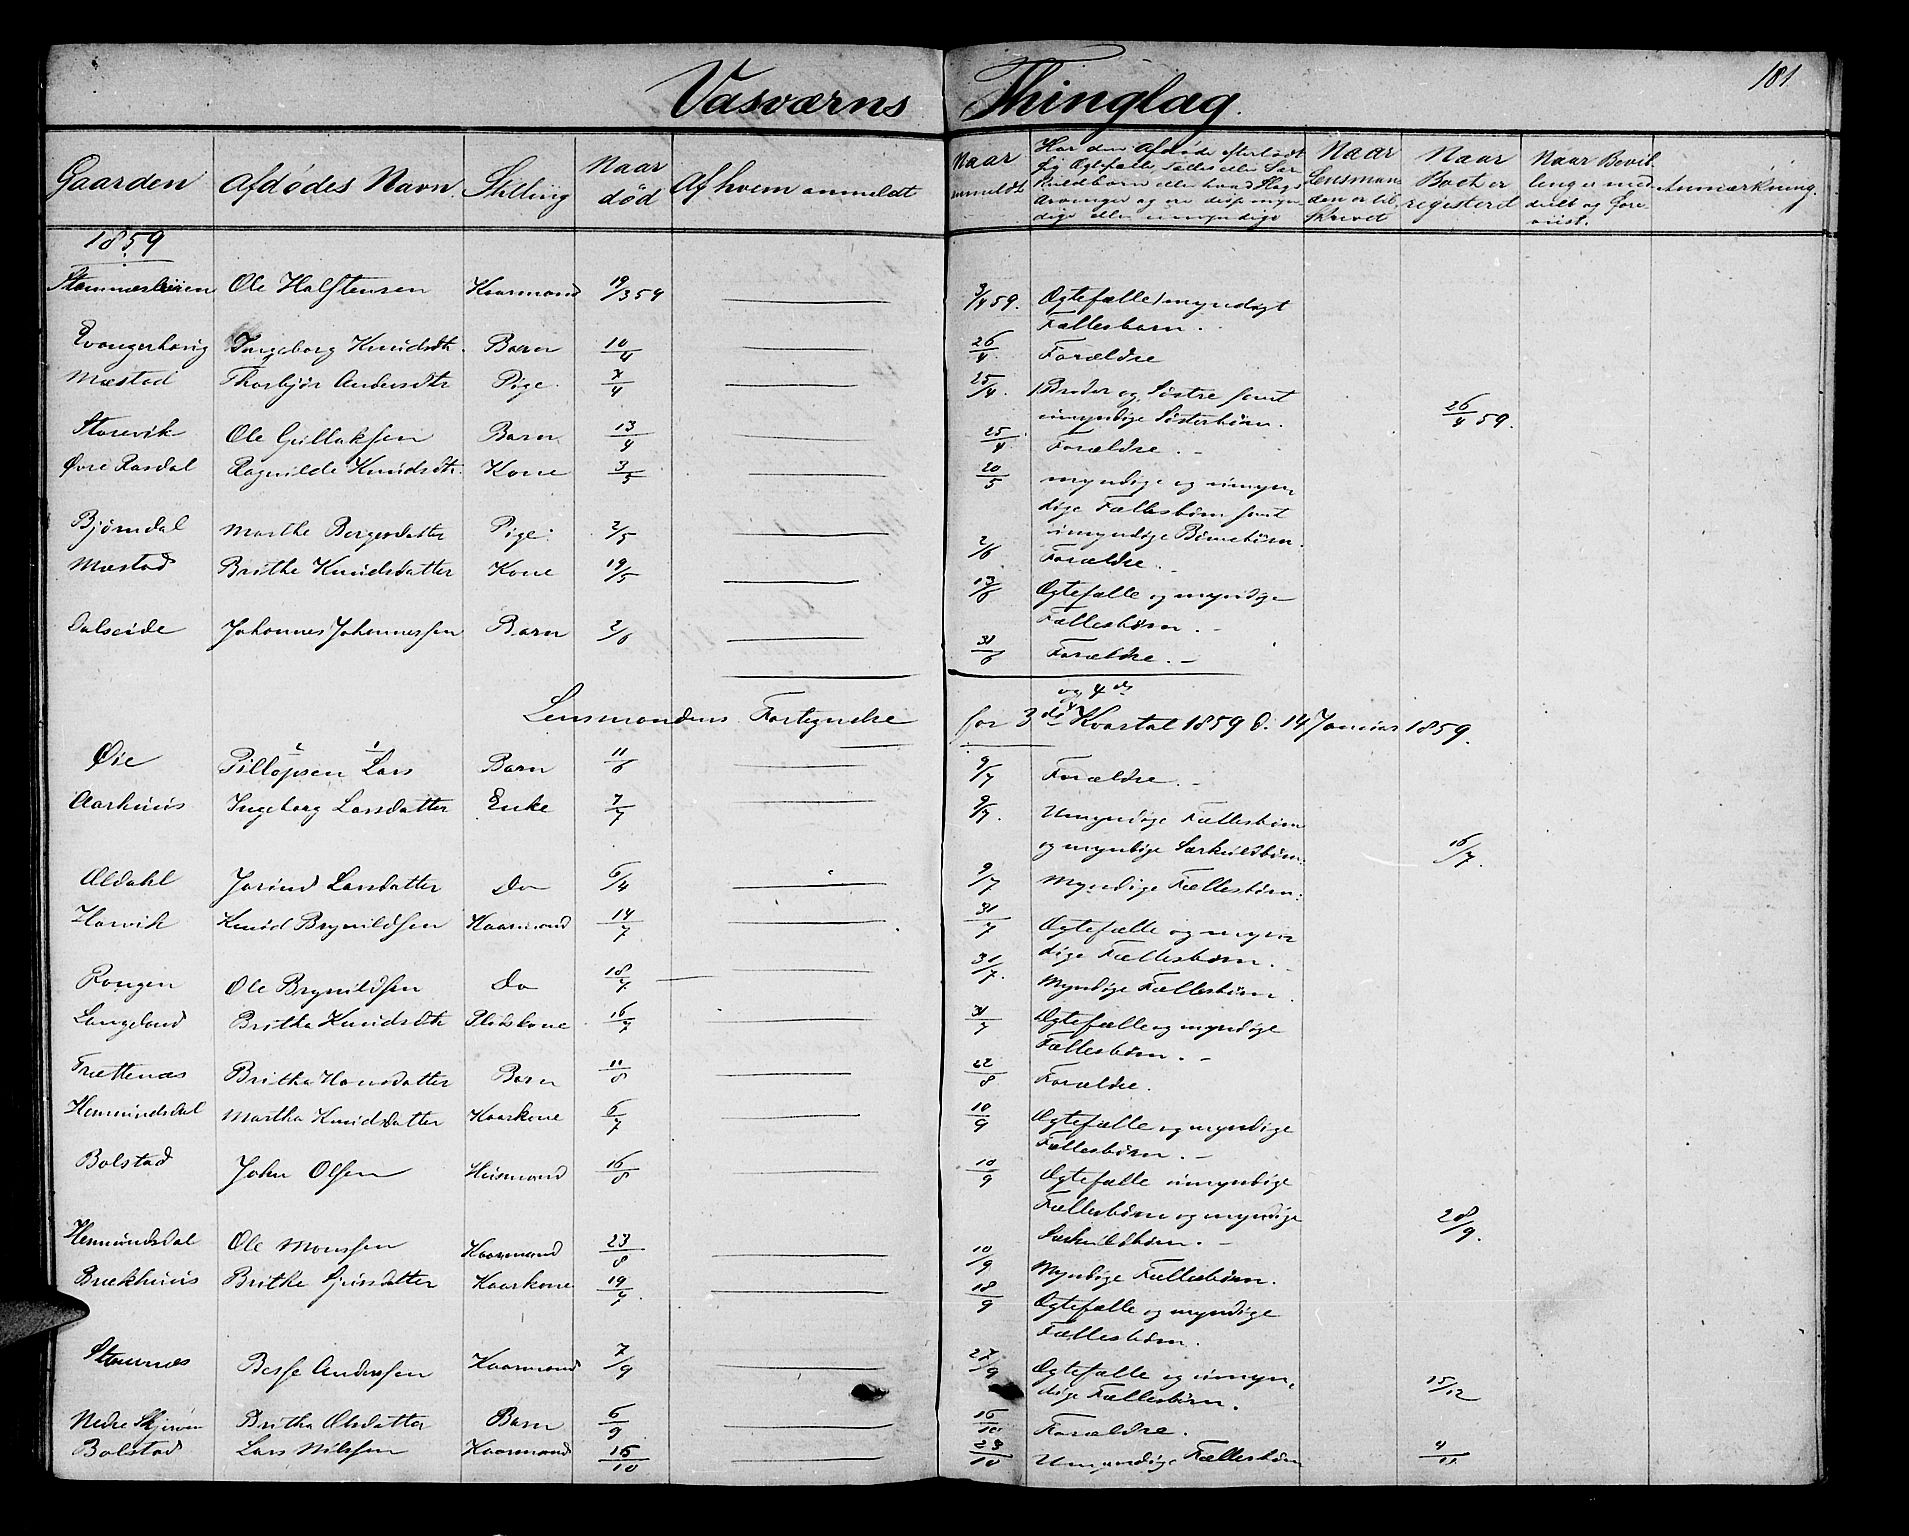 Vasværns Thinglag.
181
Gaarden Afdødes Navn. Stilling Naar død Af hvem anmeldt Naar anmeldt Har den Afdøde efterladt sig Ægtefælle, Fælles eller Særkuldbørn eller hvad Slags Arvinger og ere disse myndige eller umyndige Naar Lensmanden er tilskrevet Naar Boet er registeret Naar Bevillen er meddelt og forevist. Anmærkning.
1859
Ole Halstensen Kaarmand 19/3 59 3/4 59. Ægtefælle 1 myndigt
Fællesbarn.
Evangerhaug Ingeborg Knudsdtr. Barn 10/4 26/4 Forældre
Mæstad Thorbjør Andersdtr Pige. 7/4 25/4. 1 Broder og Søstre samt
umyndige Søsterbørn. 26/4 59.
Storevik Ole Gullaksen Barn 13/4 25/4 Forældre.
Øvre Rasdal Ragnilde Knudsdtr. Kone 3/5 20/5 myndige og umyn
dige Fællesbørn samt
umyndige Børnebørn.
Bjørndal Marthe Bergesdatter Pige. 2/5 2/6 Forældre.
Mæstad Brithe Knudsdatter Kone 19/5 13/6 Ægtefælle og myndige
Fællesbørn.
Dalseide Johannes Johannessen Barn 2/6 31/6 Forældre.
og 4de
Lensmandens Fortegnelse for 3die Kvartal 1859 d. 14 Januar 1859.
Øie Lars Barn 11/6 9/7 Forældre.
Aarhuus Ingeborg Larsdatter Enke 7/7 9/7. Umyndige Fællesbørn
og myndige Særkuldbørn. 16/7.
Ældahl Jorind Larsdatter Do 6/4 9/7 Myndige Fællesbørn.
Horvik Knud Brynildsen Kaarmand 14/7 31/7 Ægtefælle og myn
dige Fællesbørn.
Rongen Ole Brynildsen Do 18/7 31/7. Myndige Fællesbørn.
Langeland Britha Knudsdtr Pladskone 16/7 31/7 Ægtefælle og myndige
Fællesbørn.
Frættenæs Britha Hansdatter Barn 11/8 22/8 Forældre.
Hemmindsdal Martha Knudsdatter Kaarkone 6/7 10/9 Ægtefælle og myndige
Fællesbørn.
Bolstad John Olsen Huusmand 16/8 10/9 Ægtefælle umyndige
Fællesbørn og myndige
Særkuldbørn. 28/9.
Hemmindsdal Ole Monssen Kaarmand 23/8 10/9 Myndige Fællesbørn.
Brækhuus Brithe Kaarkone 19/7. 18/9 Ægtefælle og myndige
Fællesbørn.
Stamnæs Besse Anderssen Kaarmand 7/9 27/9 Ægtefælle og umyn
dige Fællesbørn. 15/12
Nedre Britha Olsdatter Barn 6/9 16/10 Forældre.
Bolstad Lars Nilssen Kaarmand 15/10 23/10 Umyndige Fællesbørn 4/11